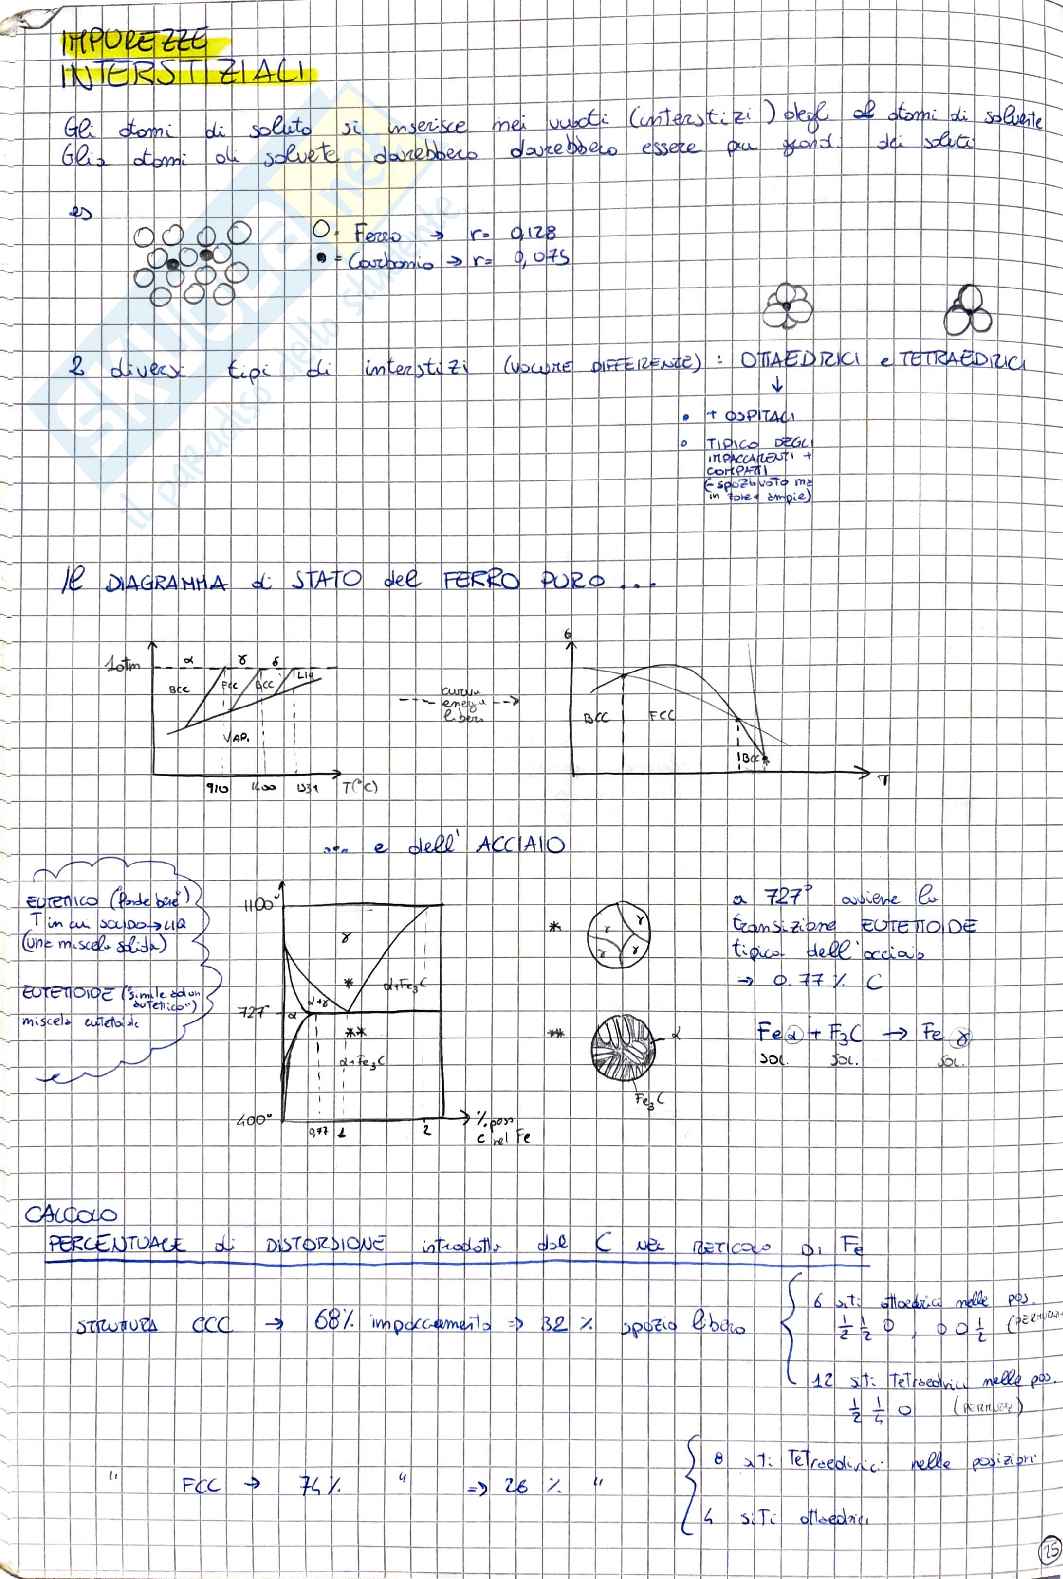 IMPUREZZE
INTERSTIZIALI
Gli atomi di soluto si inserisce nei vuoti (interstizi) degl al atomi di solvente
Glia atomi di solvete darebbero darebbero essere piu grandi dei soluti
es
= Ferro → r= 0,128
= Carbonio → r= 0,075
2 diversi tipi di interstizi (VOLUME DIFFERENTE) : OTTAEDRICI e TETRAEDRICI
↓
• + OSPITALI
• TIPICO DEGLI
IMPACCAMENTI +
COMPATTI
(- spazio vuoto ma
in zone + ampie)
Il DIAGRAMMA di STATO del FERRO PURO ...
1 atm α γ δ LIQ
BCC FCC BCC
VAP.
910 1400 1539 T(°C)
curva
energia
libera
G
BCC FCC BCC
T
... e dell' ACCIAIO
EUTETICO (Fonde bene)
T in cui SOLIDO → LIQ
(una miscela solida)
EUTETTOIDE ("simile ad un
eutetico")
miscela eutetoide
1100°
γ
*
α+Fe₃C
α+γ
727° α
**
α+Fe₃C
400°
0,77 1 2
% peso
C nel Fe
* γ γ γ γ
** α
Fe₃C
a 727° avviene la
transizione EUTETTOIDE
tipica dell'acciaio
→ 0.77 % C
Fe α + F₃C → Fe γ
SOL. SOL. SOL.
CALCOLO
PERCENTUALE di DISTORSIONE introdotta dal C nel RETICOLO DI Fe
STRUTTURA CCC → 68% impaccamento ⇒ 32 % spazio libero
6 siti ottaedrici nelle pos.
½ ½ 0 , 0 0 ½
12 siti Tetraedrici nelle pos.
½ ¼ 0 (PERMUTAZ)
" FCC → 74% " ⇒ 26 % "
8 siti Tetraedrici nelle posizioni
4 siti ottaedrici
25
Skuola.net
il paradiso dello studente